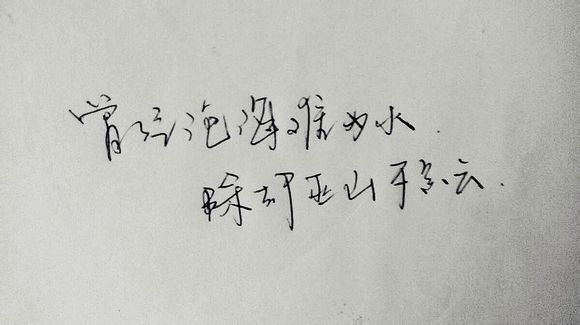 曾经沧海难为水.
除却巫山不是云.